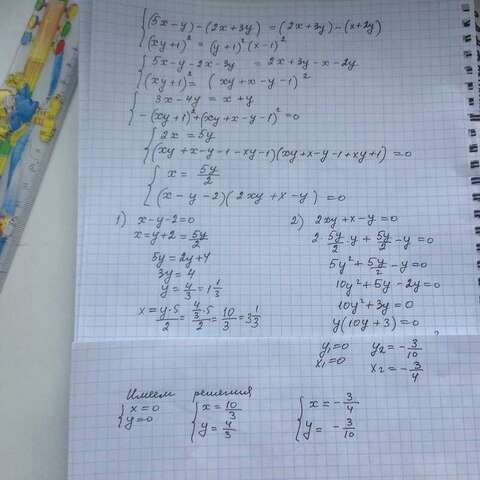 {(5x-y)-(2x+3y) = (2x+3y)-(x+2y)
(xy+1)² = (y+1)²(x-1)²
{5x-y-2x-3y = 2x+3y-x-2y
(xy+1)² = (xy+x-y-1)²
{3x-4y = x+y
-(xy+1)²+(xy+x-y-1)²=0
{2x = 5y
(xy+x-y-1-xy-1)(xy+x-y-1+xy+1)=0
{x = 5y/2
(x-y-2)(2xy+x-y)=0
1) x-y-2=0
x=y+2=5y/2
5y=2y+4
3y=4
y=4/3=1 1/3
x=y·5/2 = 4/3·5/2 = 10/3 = 3 1/3
2) 2xy+x-y=0
2·5y/2·y+5y/2-y=0
5y²+5y/2-y=0
10y²+5y-2y=0
10y²+3y=0
y(10y+3)=0
y₁=0 y₂=-3/10
x₁=0 x₂=-3/4
Имеем решения
{x=0 {x=10/3 {x=-3/4
y=0 y=4/3 y=-3/10